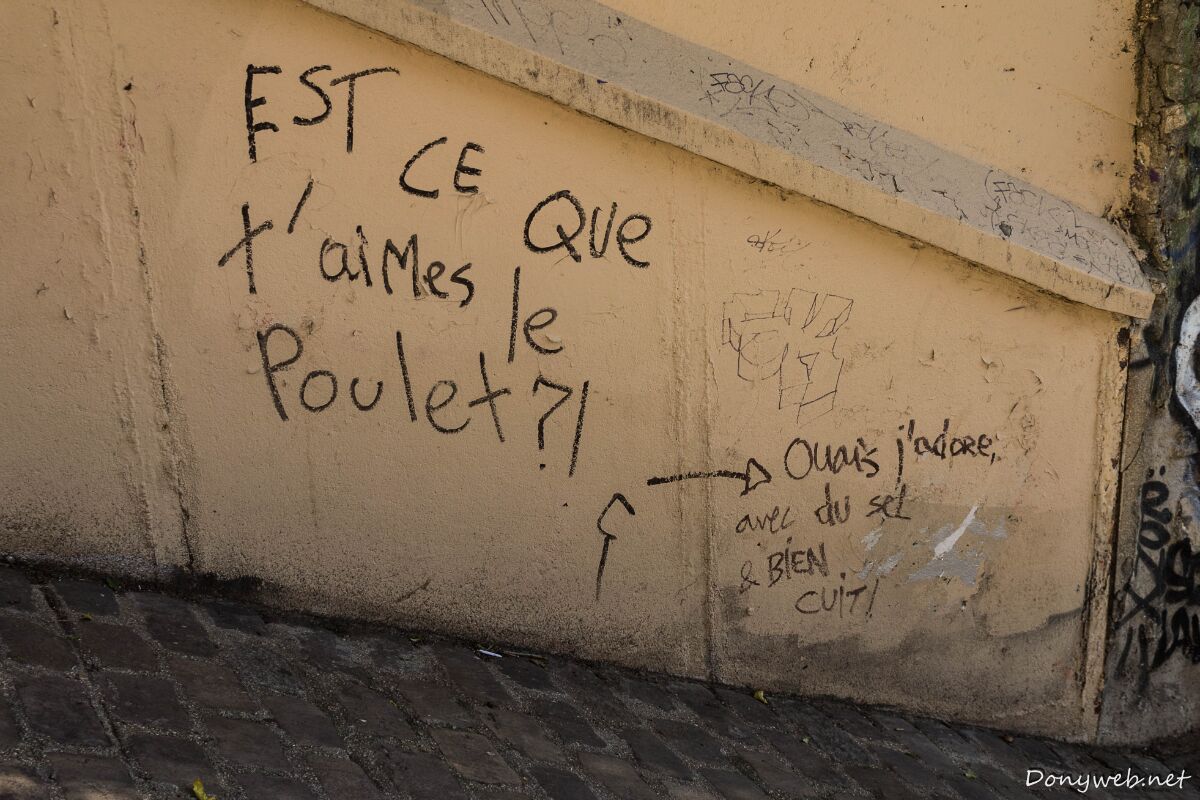 EST
CE
QUE
t'aimes le
Poulet ?!
Ouais j'adore,
avec du sel
& BIEN
CUIT!
Donyweb.net